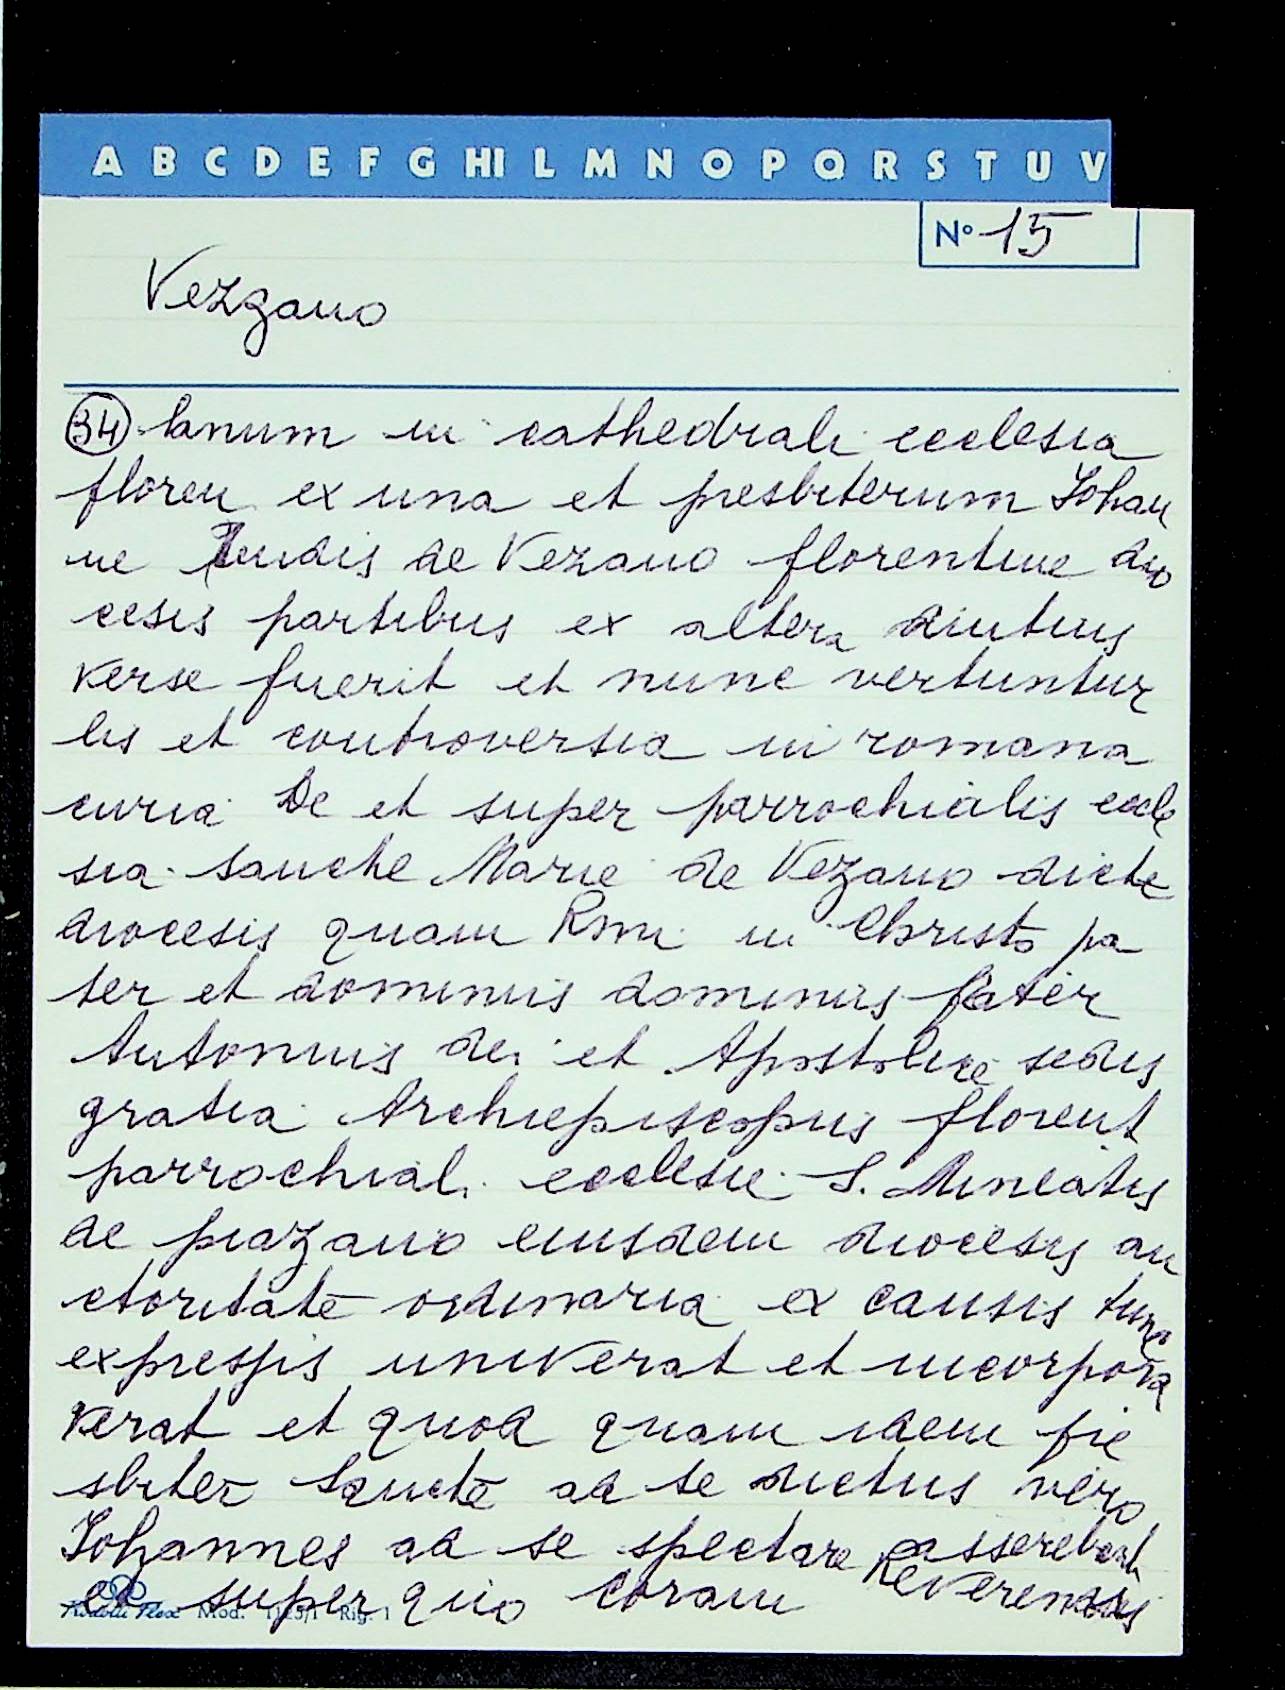 A B C D E F G HI L M N O P Q R S T U V
Nº 15
Vezzano
34 lanum in cathedrali ecclesia
floren ex una et presbiterum Johan
ne de Vezano florentine dio
cesis partibus ex altera diutius
verse fuerit et nunc vertuntur
lis et controversia in romana
curia De et super parrochialis eccle
sia sancte Marie de Vezano dicte
diocesis quam Rmi in Christo pa
ter et dominus dominus fater
Antonius dei et Apostolice sedis
gratia Archiepiscopus florent
parrochial. ecclesie S. Mineatis
de piazano eiusdem diocesis au
ctoritate ordinaria ex causis tunc
expressis univerat et incorpora
verat et quod quam idem pre
sbiter ad se dictus vero
Johannes ad se spectare asserebat
et super quo coram
Mod. 1125/1 Rig. 1